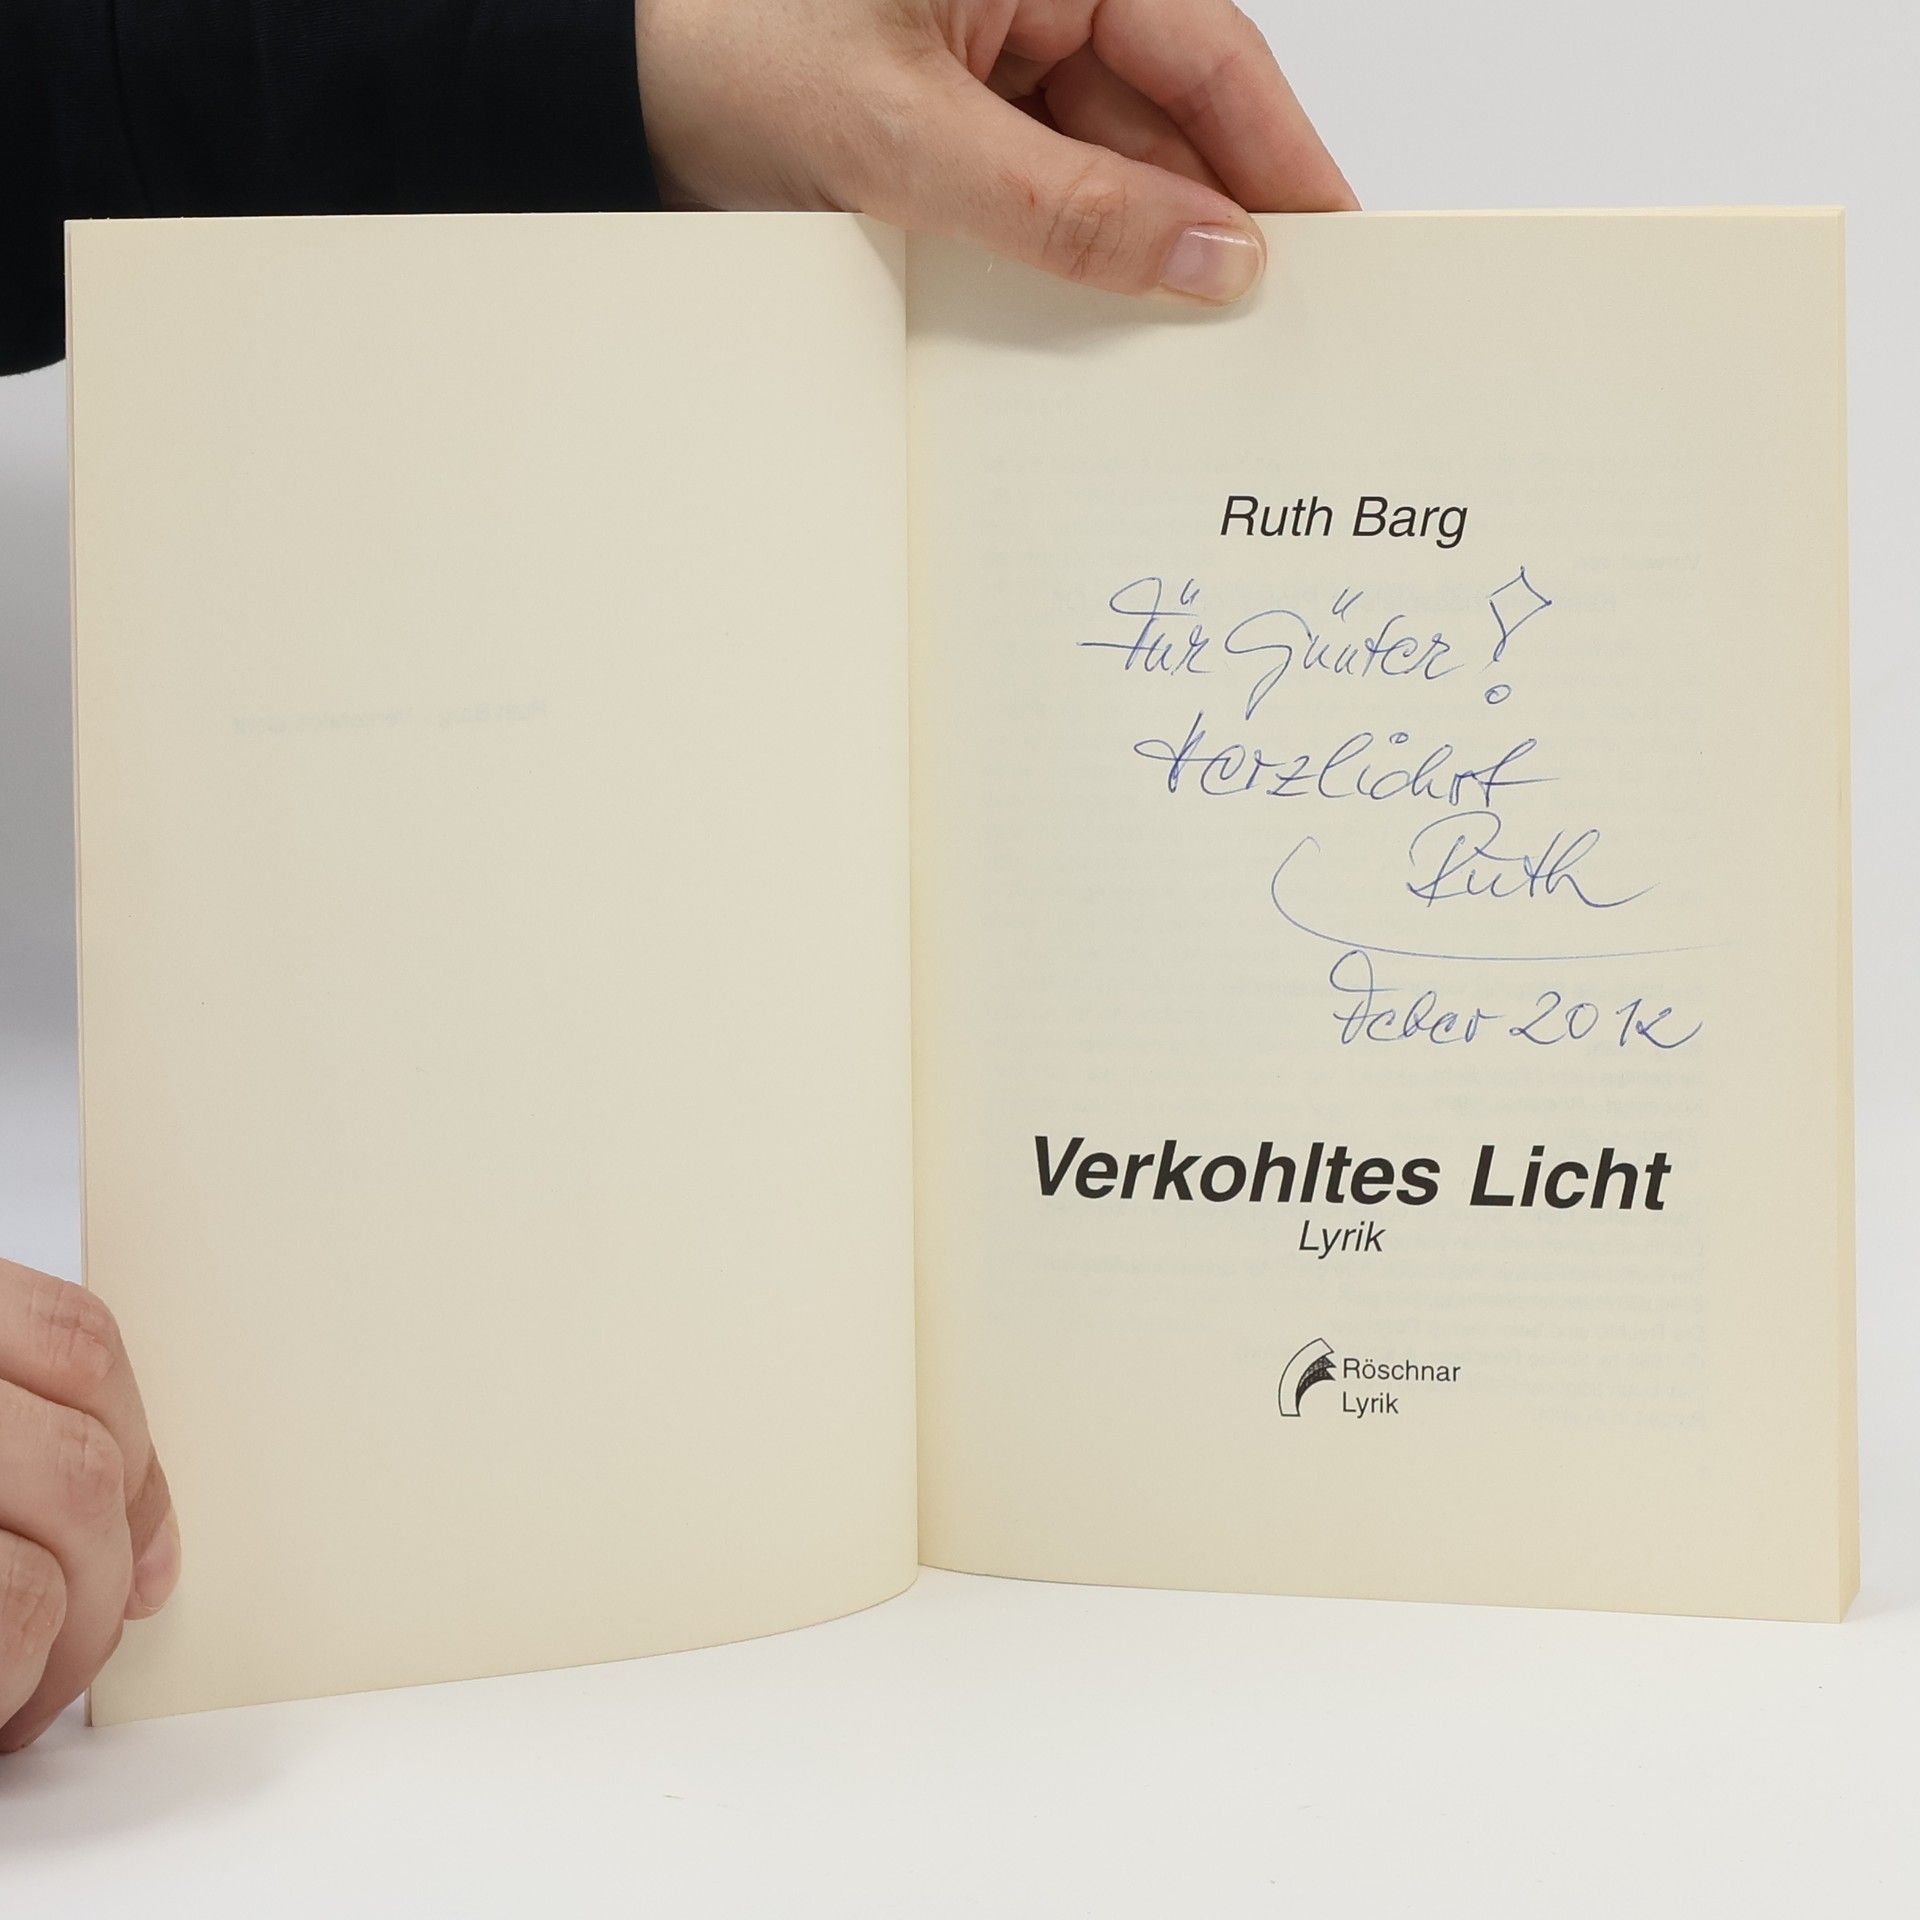 Ruth Barg
Für Günter!
Herzlichst
Ruth
Feber 2012
Verkohltes Licht
Lyrik
Röschnar
Lyrik